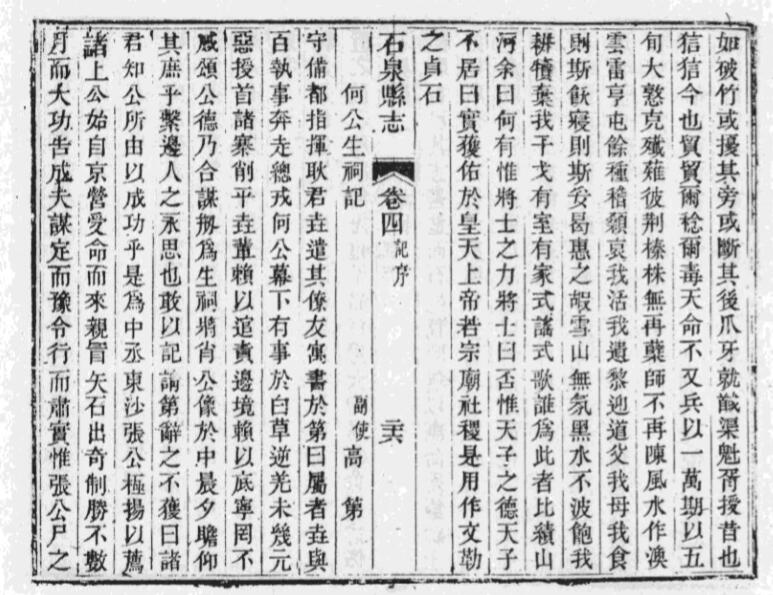 如破竹或擾其旁或斷其後爪牙就馘渠魁胥援昔也
狺狺今也貿貿爾稔爾毒天命不又兵以一萬期以五
旬大憝克殲薙彼荆榛株無再蘖師不再陳風水作渙
雲雷亨屯餘種稽顙哀我活我遺黎迎道父我母我食
則斯飲寢則斯妥曷惠之嘏雪山無氛黑水不波飽我
耕犢棄我干戈有室有家式議式歌誰爲此者比績山
河余曰何有惟將士之力將士曰否惟天子之德天子
不居曰實獲佑於皇天上帝若宗廟社稷是用作文勒
之貞石
石泉縣志 卷四 記序 二六
何公生祠記 副使高第
守備都指揮耿君垚遣其僚友寓書於第曰屬者垚與
百執事奔走總戎何公幕下有事於白草逆羌未幾元
惡授首諸寨削平垚輩賴以逭責邊境賴以底寧罔不
感頌公德乃合謀剏爲生祠將肖公像於中晨夕瞻仰
其庶乎繫邊人之永思也敢以記請第辭之不獲曰諸
君知公所由以成功乎是爲中丞東沙張公極揚以薦
諸上公始自京營受命而來親冒矢石出奇制勝不數
月而大功告成夫謀定而豫令行而肅實惟張公尸之